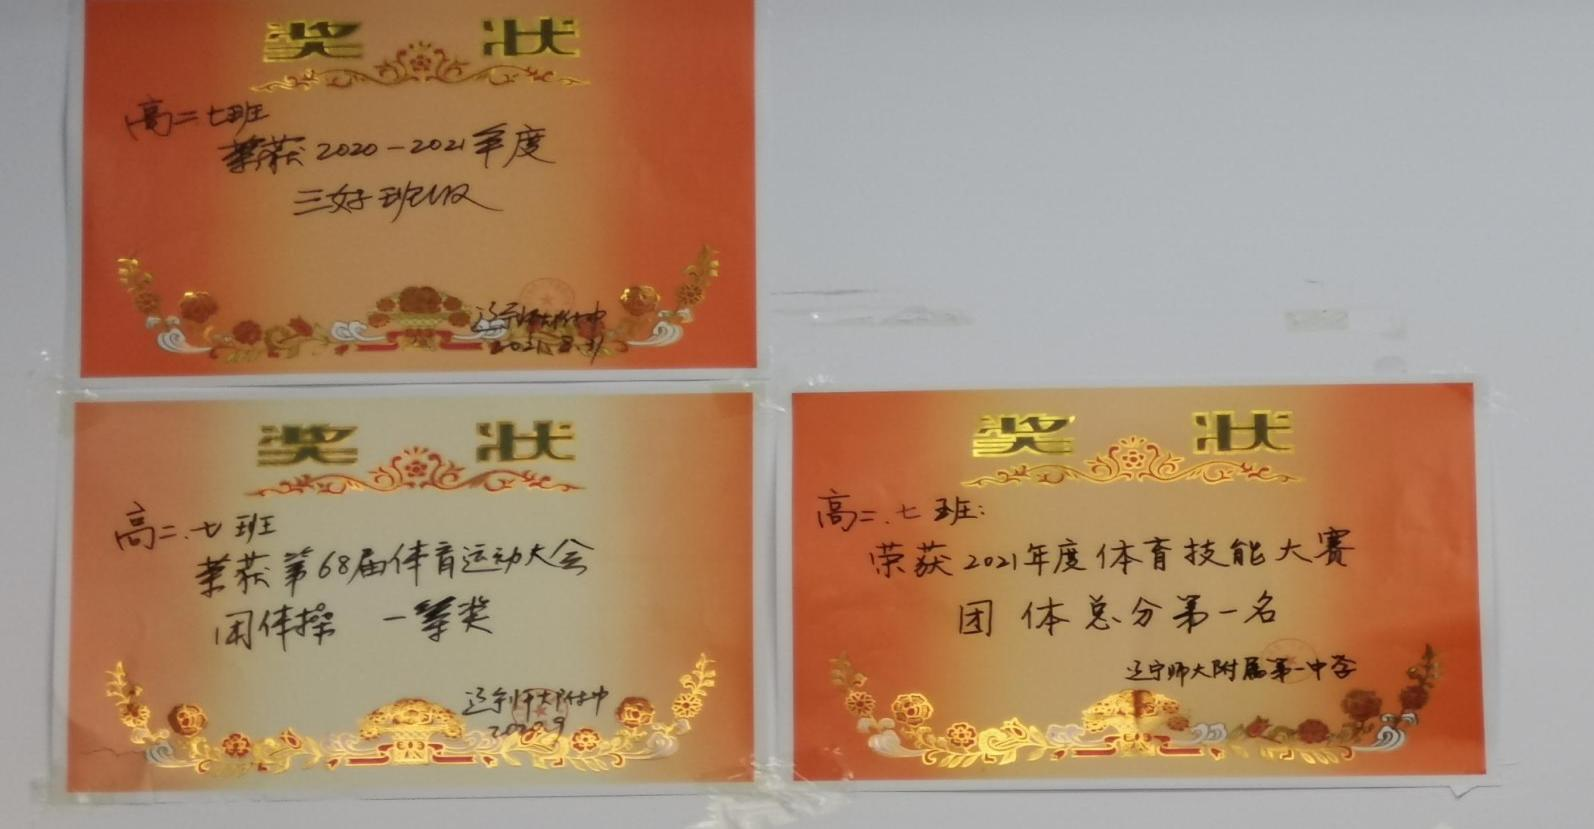 奖状
高二七班
荣获2020-2021年度
三好班级
辽宁师大附中
2021.8.31
奖状
高二.七班
荣获第68届体育运动大会
团体操 一等奖
辽宁师大附中
奖状
高二.七班:
荣获2021年度体育技能大赛
团体总分第一名
辽宁师大附属第一中学